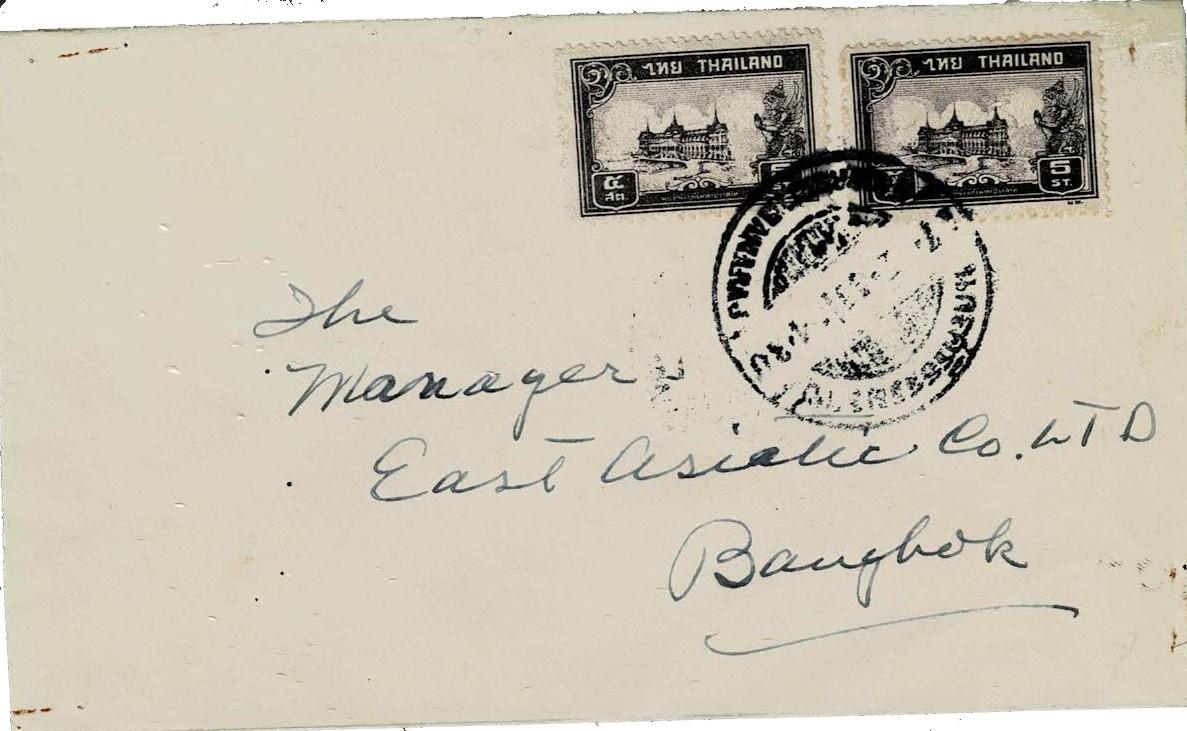 ไทย THAILAND
๕
สต.
ไทย THAILAND
5
ST.
The
Manager
East Asiatic Co. LTD
Bangkok